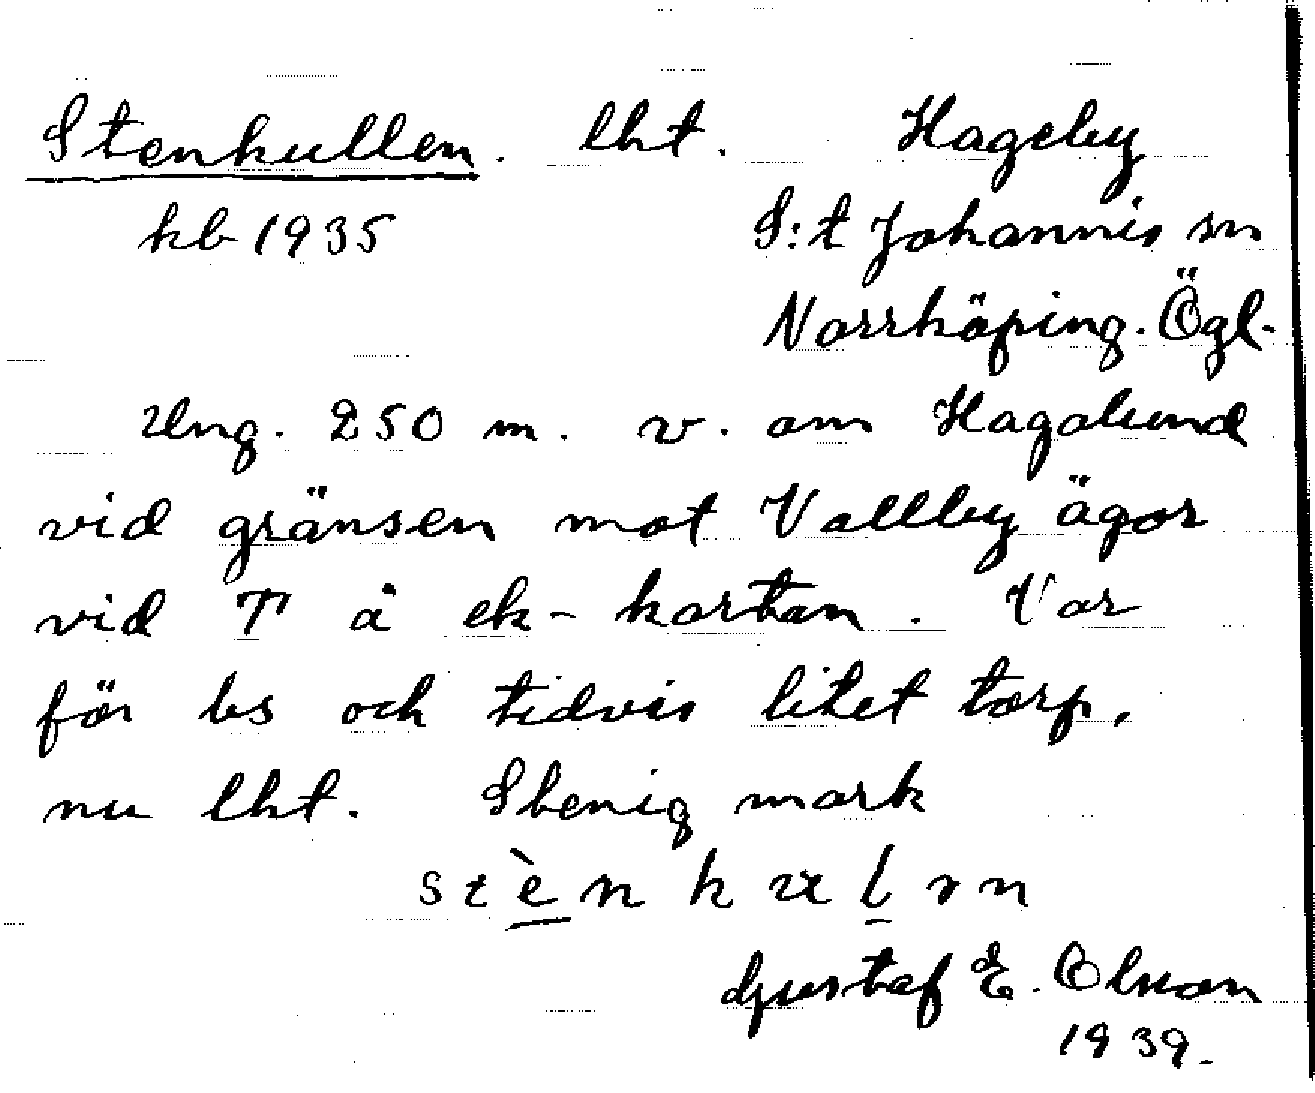 Stenkullen. lht. Hageby
kb 1935 S:t Johannis sn
Norrköping. Ögl.
Ung. 250 m. v. om Hagalund
vid gränsen mot Vallby ägor
vid T å ek-kartan. Var
för bs och tidvis litet torp,
nu lht. Stenig mark
stè̱nk l̠
Gustaf E. Olson
1939.